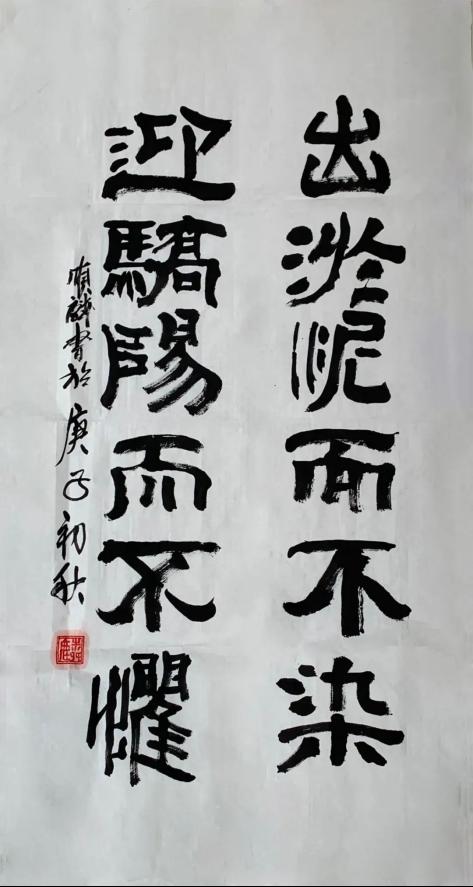 出淤泥而不染
迎驕陽而不懼
順誠書於庚子初秋